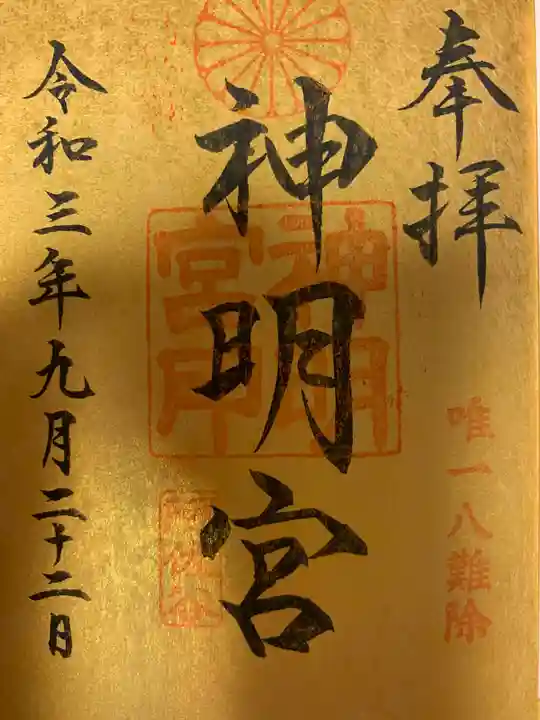 奉拝
唯一八難除
神明宮
神明
宮印
令和三年九月二十二日